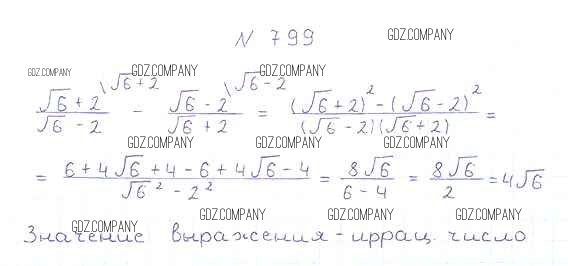 N 799 GDZ.COMPANY
GDZ.COMPANY GDZ.COMPANY GDZ.COMPANY
\√6+2 \√6-2
(√6+2)/(√6-2) - (√6-2)/(√6+2) = ((√6+2)²-(√6-2)²)/((√6-2)(√6+2)) =
GDZ.COMPANY GDZ.COMPANY GDZ.COMPANY
= (6+4√6+4-6+4√6-4)/(√6²-2²) = 8√6/(6-4) = 8√6/2 = 4√6
GDZ.COMPANY GDZ.COMPANY GDZ.COMPANY GDZ.COMPANY
Значение выражения - иррац. число